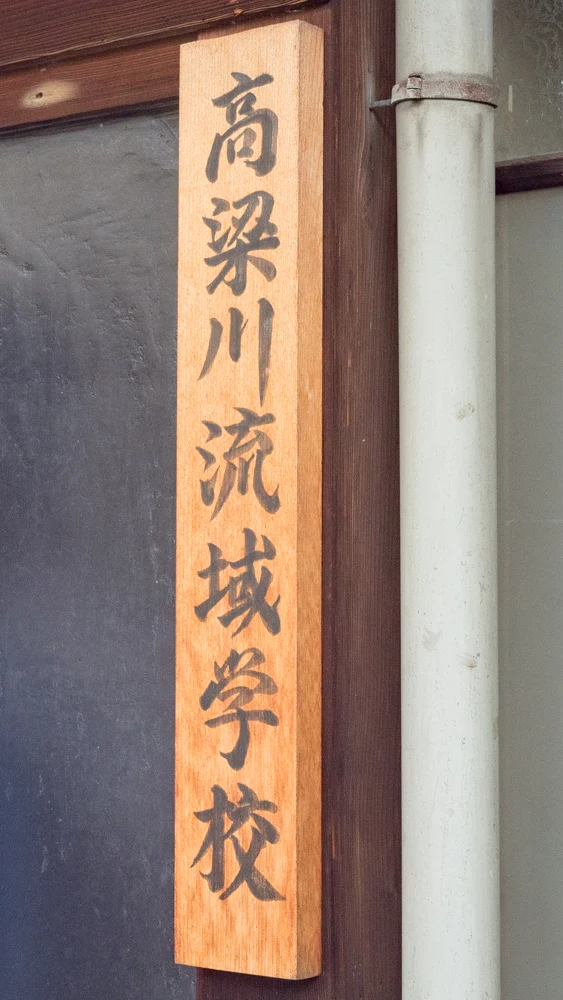 高梁川流域学校